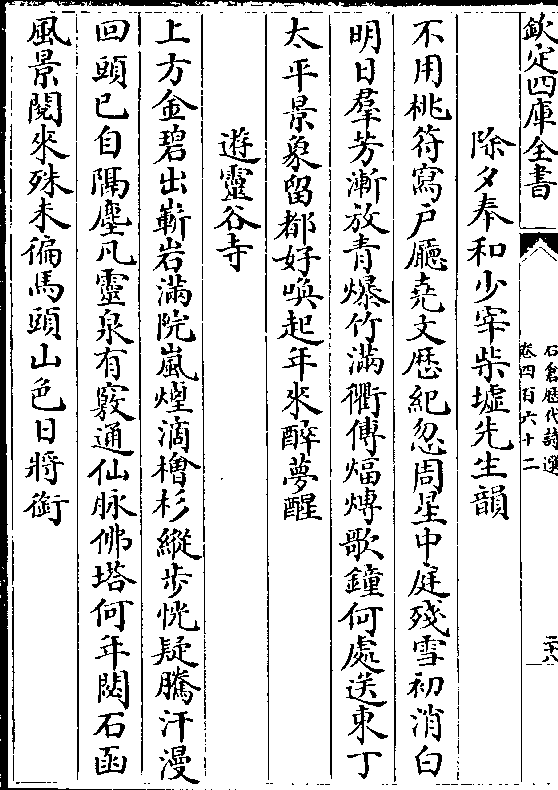 欽定四庫全書
石倉歴代詩選
卷四百六十二
二十八
除夕奉和少宰柴墟先生韻
不用桃符寫户廳堯文歴紀忽周星中庭殘雪初消白
明日羣芳漸放青爆竹滿衢傳煏煿歌鐘何處送東丁
太平景象留都好喚起年來醉夢醒
遊靈谷寺
上方金碧出嶄岩滿院嵐煙滴檜杉縱步恍疑騰汗漫
回頭已自隔塵凡靈泉有竅通仙脉佛塔何年閟石函
風景閲來殊未徧馬頭山色日將銜